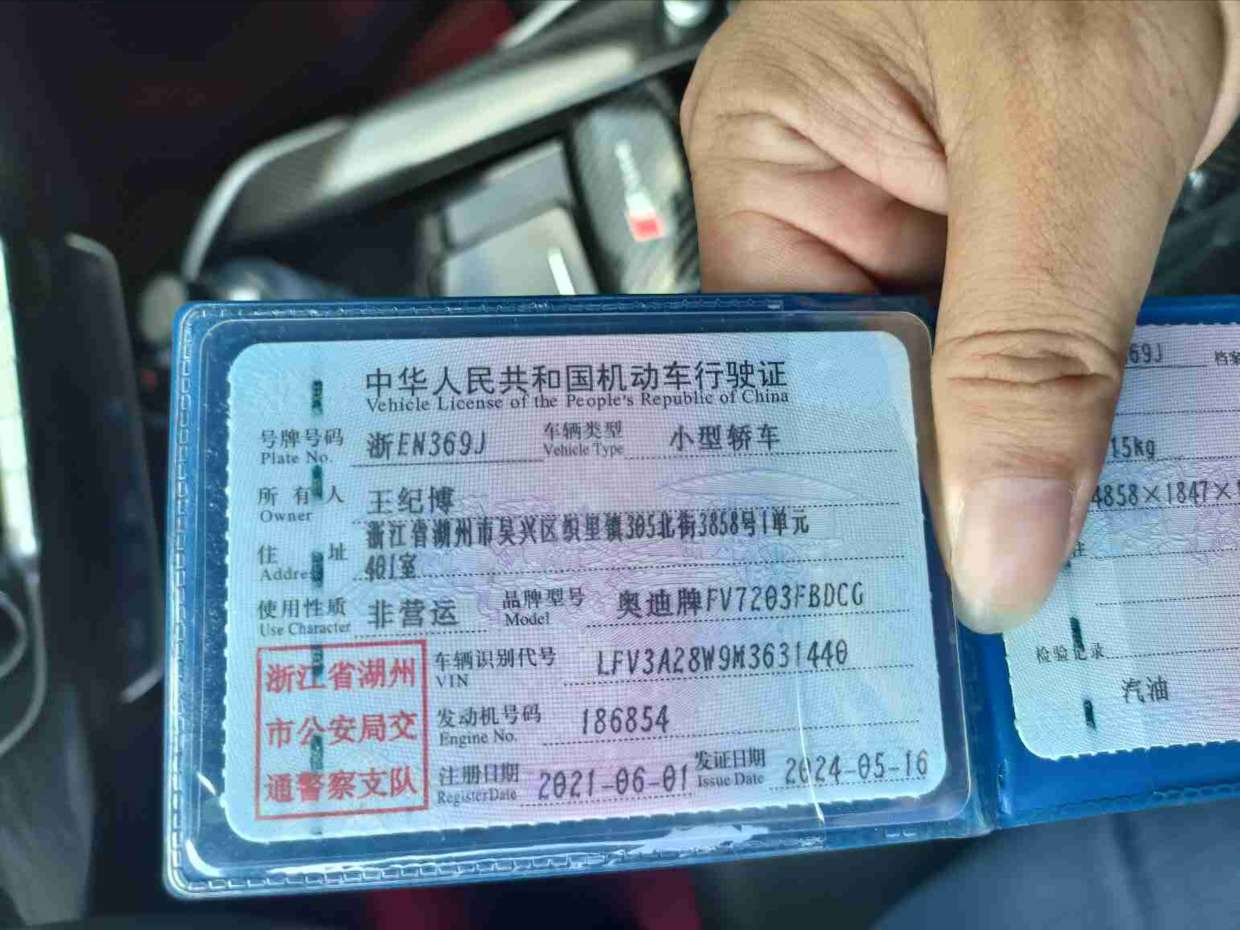 中华人民共和国机动车行驶证
Vehicle License of the People's Republic of China
号牌号码 浙EN369J 车辆类型 小型轿车
Plate No. Vehicle Type
所有人 王纪博
Owner
浙江省湖州市吴兴区织里镇305北街3858号1单元
住址 401室
Address
使用性质 非营运 品牌型号 奥迪牌FV7203FBDCG
Use Character Model
浙江省湖州
市公安局交
通警察支队
车辆识别代号 LFV3A28W9M3631440
VIN
发动机号码 186854
Engine No.
注册日期 2021-06-01 发证日期 2024-05-16
Register Date Issue Date
69J 档案
15kg
4858×1847×
检验记录
汽油